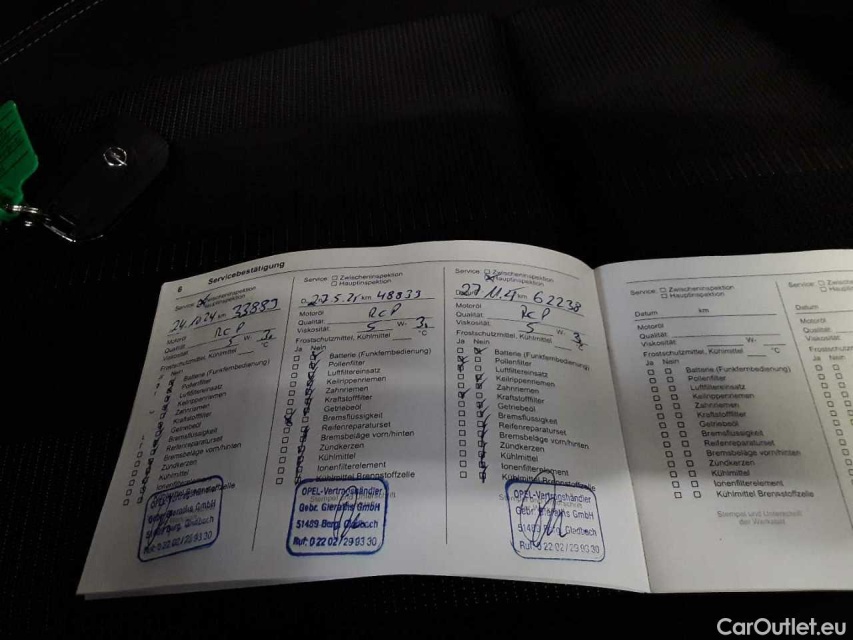 6 Servicebestätigung
Service: Zwischeninspektion
Hauptinspektion
24.10.24 km 33889
Motoröl
Qualität RcP
Viskosität 5 W- 30
Frostschutzmittel, Kühlmittel °C
Ja Nein
Batterie (Funkfernbedienung)
Pollenfilter
Luftfiltereinsatz
Keilrippenriemen
Zahnriemen
Kraftstofffilter
Getriebeöl
Bremsflüssigkeit
Reifenreparaturset
Bremsbeläge vorn/hinten
Zündkerzen
Kühlmittel
Gebr. Gieraths GmbH
Ruf: 0 22 02 / 29 93 30
Service: Zwischeninspektion
Hauptinspektion
27.5.25 km 48839
Motoröl
Qualität: RcP
Viskosität: 5 W- 30
Frostschutzmittel, Kühlmittel °C
Ja Nein
Batterie (Funkfernbedienung)
Pollenfilter
Luftfiltereinsatz
Keilrippenriemen
Zahnriemen
Kraftstofffilter
Getriebeöl
Bremsflüssigkeit
Reifenreparaturset
Bremsbeläge vorn/hinten
Zündkerzen
Kühlmittel
Ionenfilterelement
Kühlmittel Brennstoffzelle
OPEL-Vertragshändler
Gebr. Gieraths GmbH
51469 Berg. Gladbach
Ruf: 0 22 02 / 29 93 30
Service: Zwischeninspektion
Hauptinspektion
27.11.25 km 62238
Motoröl
Qualität: RcP
Viskosität: 5 W- 30
Frostschutzmittel, Kühlmittel °C
Ja Nein
Batterie (Funkfernbedienung)
Pollenfilter
Luftfiltereinsatz
Keilrippenriemen
Zahnriemen
Kraftstofffilter
Getriebeöl
Bremsflüssigkeit
Reifenreparaturset
Bremsbeläge vorn/hinten
Zündkerzen
Kühlmittel
Ionenfilterelement
Kühlmittel Brennstoffzelle
OPEL-Vertragshändler
Gebr. Gieraths GmbH
51469 Berg. Gladbach
Ruf: 0 22 02 / 29 93 30
Service: Zwischeninspektion
Hauptinspektion
Datum km
Motoröl
Qualität:
Viskosität: W-
Frostschutzmittel, Kühlmittel °C
Ja Nein
Batterie (Funkfernbedienung)
Pollenfilter
Luftfiltereinsatz
Keilrippenriemen
Zahnriemen
Kraftstofffilter
Getriebeöl
Bremsflüssigkeit
Reifenreparaturset
Bremsbeläge vorn/hinten
Zündkerzen
Kühlmittel
Ionenfilterelement
Kühlmittel Brennstoffzelle
Stempel und Unterschrift
der Werkstatt
Service:
Datum
Motoröl
Qualität:
Viskosität
Ja Nein
CarOutlet.eu